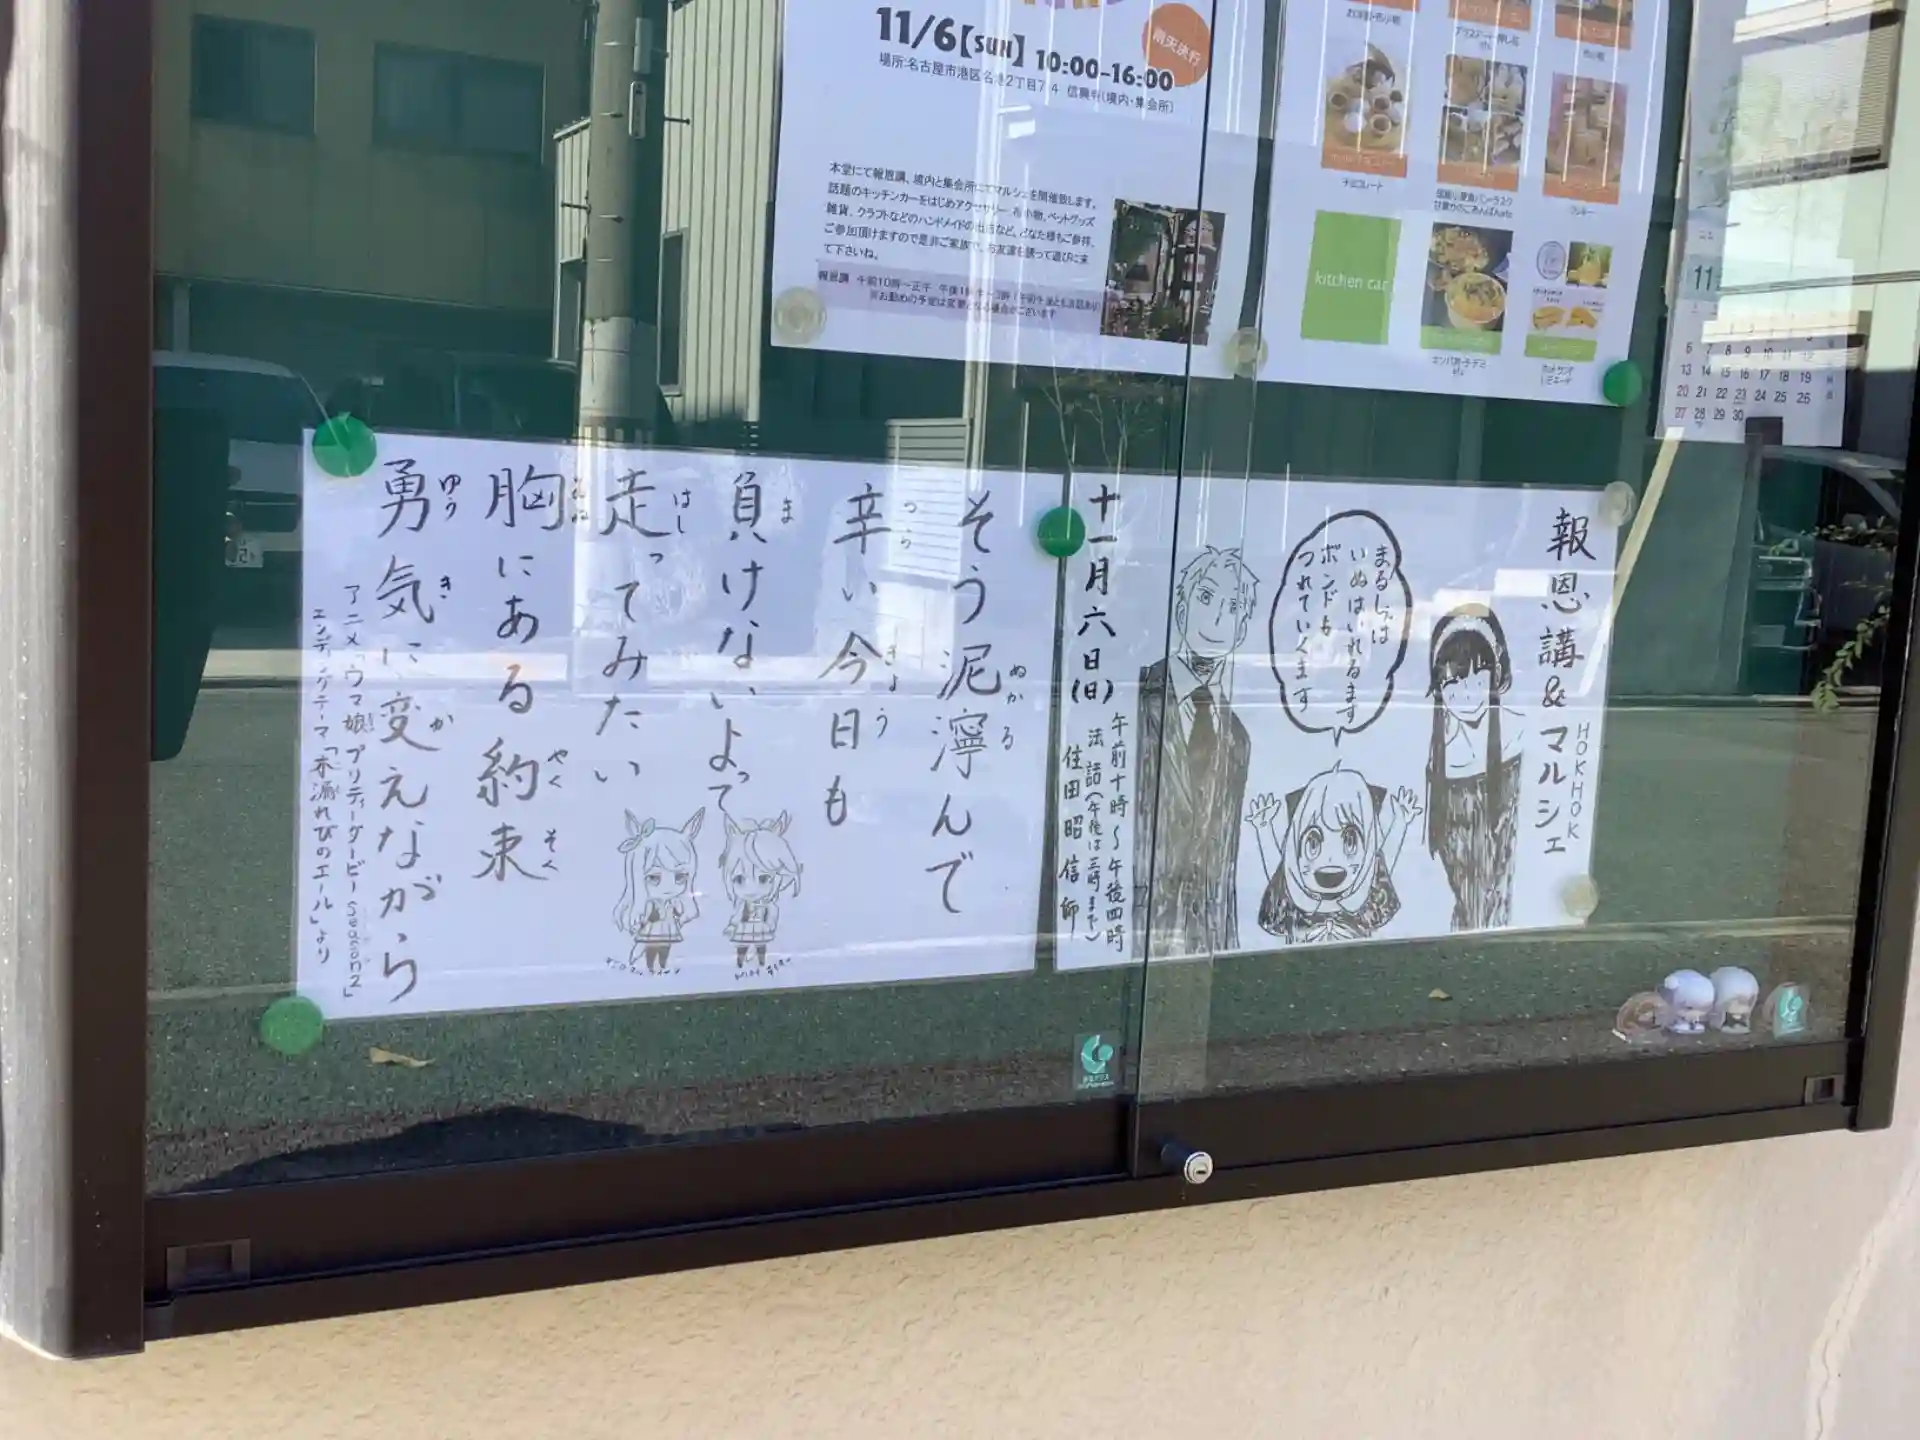 11/6【SUN】 10:00-16:00
場所:名古屋市港区名港2丁目7-4 信興寺(境内・集会所)
雨天決行
本堂にて報恩講、境内と集会所にてマルシェを開催致します。
話題のキッチンカーをはじめアクセサリー、布小物、ペットグッズ
雑貨、クラフトなどのハンドメイドの出店など、どなた様もご参拝、
ご参加頂けますので是非ご家族で、お友達を誘って遊びに来
て下さいね。
※お勤めの予定は変更となる場合がございます
チョコレート
クッキー
kitchen car
11
6 7 8 9 10 11 12
13 14 15 16 17 18 19
20 21 22 23 24 25 26
27 28 29 30
報恩講&マルシェ
HOKHOK
まるしぇは
いぬはいれるます
ボンドも
つれていくます
十一月六日(日)
午前十時〜午後四時
法話(午後は三時まで)
住田昭信師
そう泥濘んで
ぬかる
辛い今日も
つら きょう
負けないよって
ま
走ってみたい
はし
胸にある約束
むね やくそく
勇気に変えながら
ゆうき か
アニメ「ウマ娘プリティーダービーSeason2」
エンディングテーマ「木漏れびのエール」より